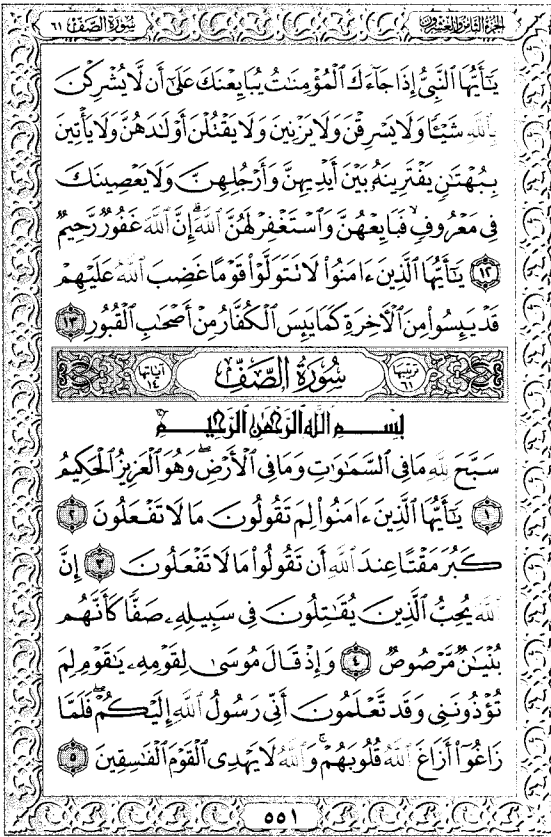 الجزء الثامن والعشرون
سورة الصف ٦١
يَٰٓأَيُّهَا ٱلنَّبِيُّ إِذَا جَآءَكَ ٱلْمُؤْمِنَٰتُ يُبَايِعْنَكَ عَلَىٰٓ أَن لَّا يُشْرِكْنَ
بِٱللَّهِ شَيْـًٔا وَلَا يَسْرِقْنَ وَلَا يَزْنِينَ وَلَا يَقْتُلْنَ أَوْلَٰدَهُنَّ وَلَا يَأْتِينَ
بِبُهْتَٰنٍ يَفْتَرِينَهُۥ بَيْنَ أَيْدِيهِنَّ وَأَرْجُلِهِنَّ وَلَا يَعْصِينَكَ
فِى مَعْرُوفٍ ۙ فَبَايِعْهُنَّ وَٱسْتَغْفِرْ لَهُنَّ ٱللَّهَ ۖ إِنَّ ٱللَّهَ غَفُورٌ رَّحِيمٌ
١٢ يَٰٓأَيُّهَا ٱلَّذِينَ ءَامَنُوا۟ لَا تَتَوَلَّوْا۟ قَوْمًا غَضِبَ ٱللَّهُ عَلَيْهِمْ
قَدْ يَئِسُوا۟ مِنَ ٱلْـَٔاخِرَةِ كَمَا يَئِسَ ٱلْكُفَّارُ مِنْ أَصْحَٰبِ ٱلْقُبُورِ ١٣
ترتيبها ٦١ سُورَةُ الصَّفِّ آياتها ١٤
بسم الله الرحمن الرحيم
سَبَّحَ لِلَّهِ مَا فِى ٱلسَّمَٰوَٰتِ وَمَا فِى ٱلْأَرْضِ ۖ وَهُوَ ٱلْعَزِيزُ ٱلْحَكِيمُ
١ يَٰٓأَيُّهَا ٱلَّذِينَ ءَامَنُوا۟ لِمَ تَقُولُونَ مَا لَا تَفْعَلُونَ ٢
كَبُرَ مَقْتًا عِندَ ٱللَّهِ أَن تَقُولُوا۟ مَا لَا تَفْعَلُونَ ٣ إِنَّ
ٱللَّهَ يُحِبُّ ٱلَّذِينَ يُقَٰتِلُونَ فِى سَبِيلِهِۦ صَفًّا كَأَنَّهُم
بُنْيَٰنٌ مَّرْصُوصٌ ٤ وَإِذْ قَالَ مُوسَىٰ لِقَوْمِهِۦ يَٰقَوْمِ لِمَ
تُؤْذُونَنِى وَقَد تَّعْلَمُونَ أَنِّى رَسُولُ ٱللَّهِ إِلَيْكُمْ ۖ فَلَمَّا
زَاغُوٓا۟ أَزَاغَ ٱللَّهُ قُلُوبَهُمْ ۚ وَٱللَّهُ لَا يَهْدِى ٱلْقَوْمَ ٱلْفَٰسِقِينَ ٥
٥٥١